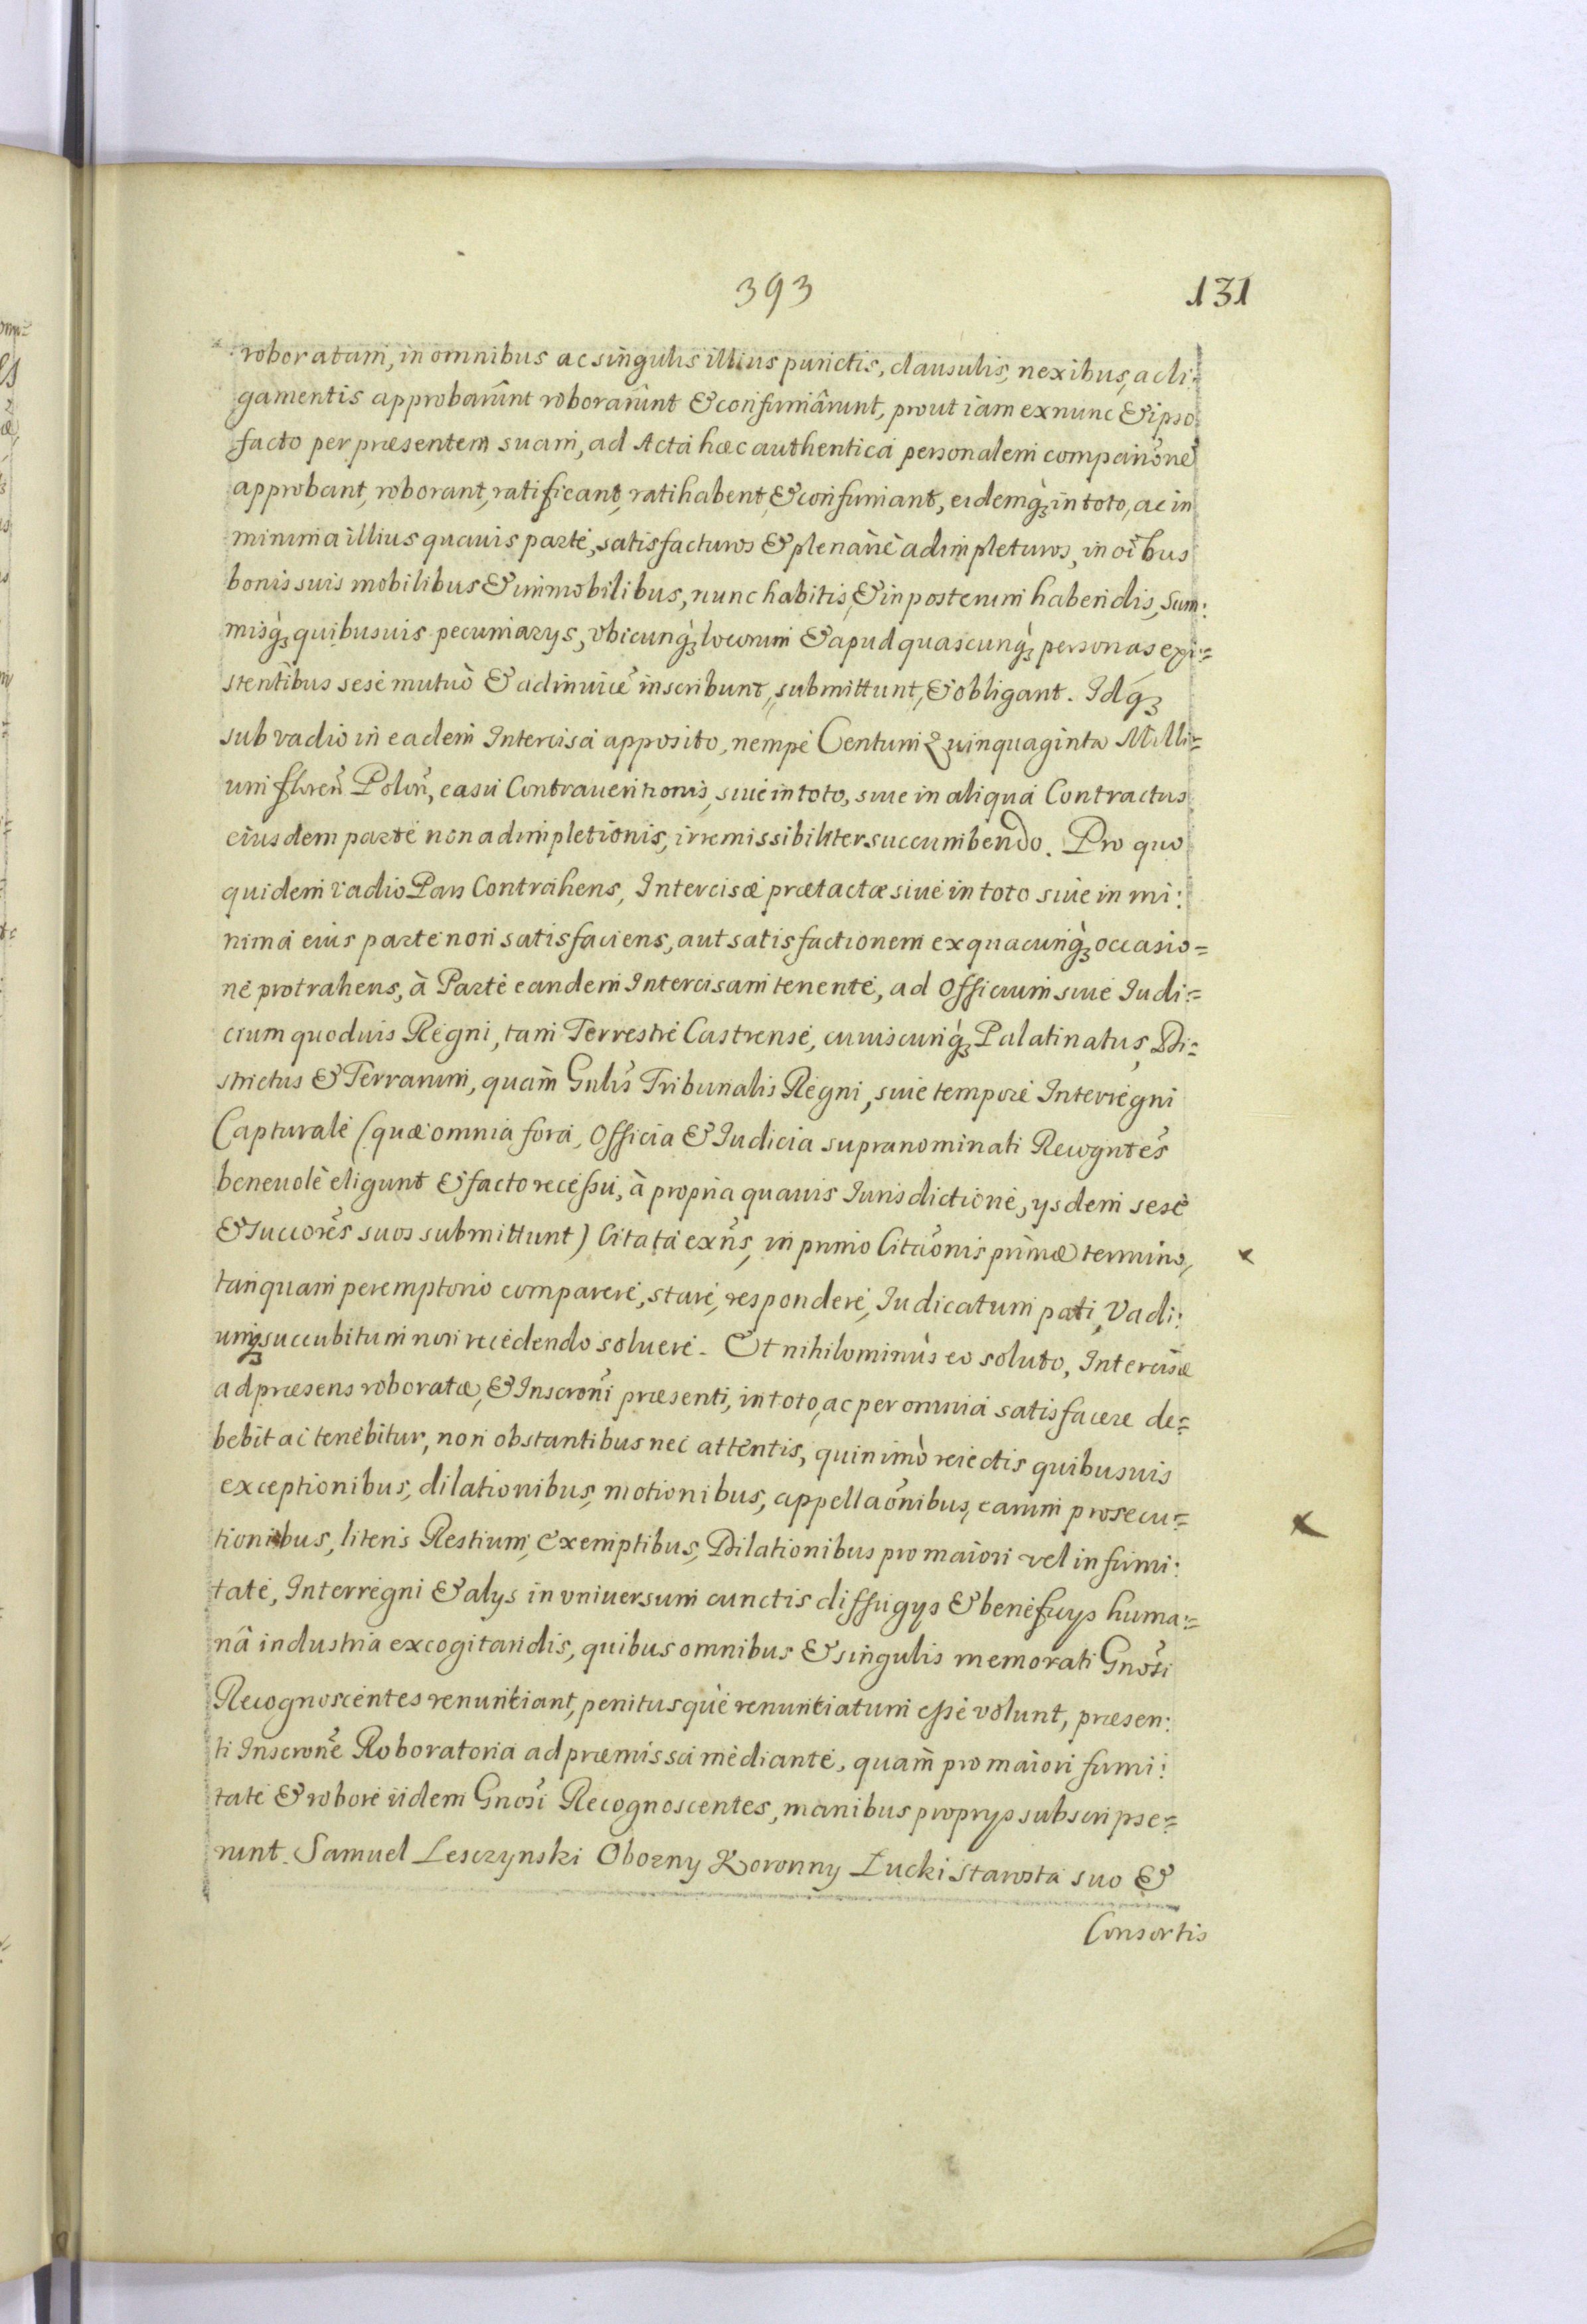 393
131
roboratam, in omnibus ac singulis illius punctis, clausulis, nexibus, ac li:
gamentis approbarûnt roborarûnt & confirmârunt, prout iam ex nunc & ipso
facto per præsentem suam, ad Acta hæc authentica personalem compariõnẽ
approbant, roborant, ratificant, ratihabent, & confirmant, eidemq̀ꝫ in toto, ac in
minima illius quavis parte, satisfacturos & plenarìe adimpleturos, in oĩbus
bonis suis mobilibus & immobilibus, nunc habitis, & in posterum habendis, Sum:
misq̀ꝫ quibusuis pecuniarys, vbicunq̀ꝫ locorum & apud quascunq̀ꝫ personas exi:=
stentibus sese mutuò & adinuicẽ inscribunt, submittunt, & obligant. Idq́ꝫ
sub vadio in eadem Intercisa apposito, nempe Centum Quinquaginta Milli=
um floreñ Poloñ, casu Contrauentionis, siue in toto, siue in aliqua Contractus
eiusdem parte non adimpletionis, irremissibiliter succumbendo. Pro quo
quidem vadio Pars Contrahens, Intercisæ prætactæ siue in toto siue in mi:
nima eius parte non satisfaciens, aut satisfactionem ex quacunq̀ꝫ occasio=
ne protrahens, à Parte eandem Intercisam tenente, ad Officium siue Iudi:=
cium quoduis Regni, tam Terrestre Castrense, cuiuscunq̀ꝫ Palatinatus, Di=
strictus & Terrarum, quam̃ Gnlis̃ Tribunalis Regni, siue tempore Interregni
Capturale (quæ omnia fora, Officia & Iudicia supranominati Recogntẽs
beneuolè eligunt & facto recessu, à propria quauis Iurisdictione, ysdem sese
& Succorẽs suos submittunt) Citata exñs, in primo Citaõnis primæ termino,
tanquam peremptorio comparere, stare, respondere, Iudicatum pati, Vadi:
umqꝫ succubitum non recedendo soluere. Et nihilominùs eo soluto, Intercisæ
ad præsens roboratæ, & Inscroñi præsenti, in toto, ac per omnia satisfacere de=
bebit ac tenebitur, non obstantibus nec attentis, quinimò reiectis quibusuis
exceptionibus, dilationibus, motionibus, appellaõnibus, earum prosecu=
tionibus, literis Restium, Exemptibus, Dilationibus pro maiori vel infirmi:
tate, Interregni & alys in vniuersum cunctis diffugys & beneficys huma:=
nâ industria excogitandis, quibus omnibus & singulis memorati Gnosĩ
Recognoscentes renuntiant, penitusque renuntiatum esse volunt, præsen:
ti Inscronẽ Roboratoria ad præmissa mediante, quam̃ pro maiori firmi:
tate & robore iidem Gnosĩ Recognoscentes, manibus proprys subscripse=
runt. Samuel Lesczynski Obozny Koronny Łucki Starosta suo &
Consortis